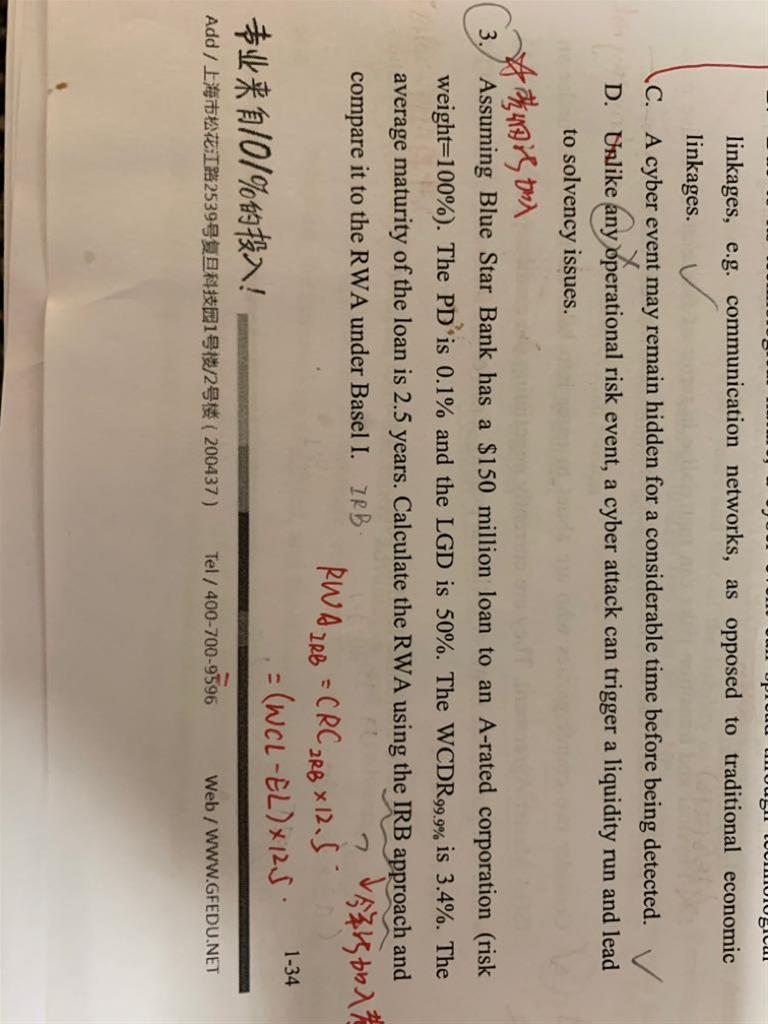 linkages, e.g. communication networks, as opposed to traditional economic
linkages.
C. A cyber event may remain hidden for a considerable time before being detected.
D. Unlike any operational risk event, a cyber attack can trigger a liquidity run and lead
to solvency issues.
3. Assuming Blue Star Bank has a $150 million loan to an A-rated corporation (risk
weight=100%). The PD is 0.1% and the LGD is 50%. The WCDR99.9% is 3.4%. The
average maturity of the loan is 2.5 years. Calculate the RWA using the IRB approach and
compare it to the RWA under Basel I.
IRB.
RWA IRB = CRC IRB × 12.5
= (WCL - EL) × 12.5
1-34
专业来自101%的投入!
Add / 上海市松花江路2539号复旦科技园1号楼/2号楼 ( 200437 ) Tel / 400-700-9596 Web / WWW.GFEDU.NET